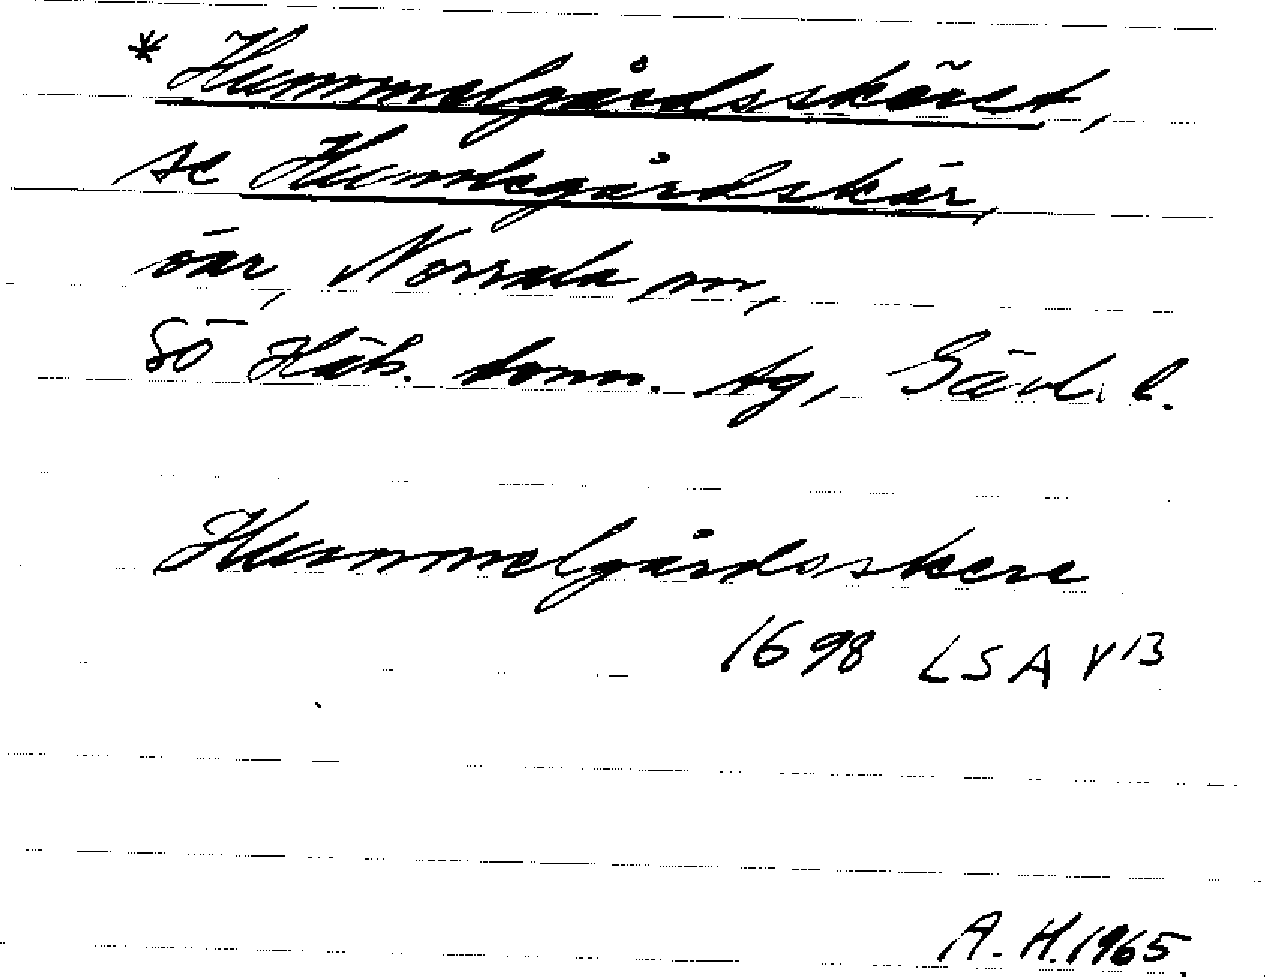 * Hummelgårdsskäret,
se Humlegårdskär,
öar, Norrala sn,
Sö Häls. doms. tg, Gävl. l.
Hummelgårdsskere
1698 LSA V 13
A. H. 1965.